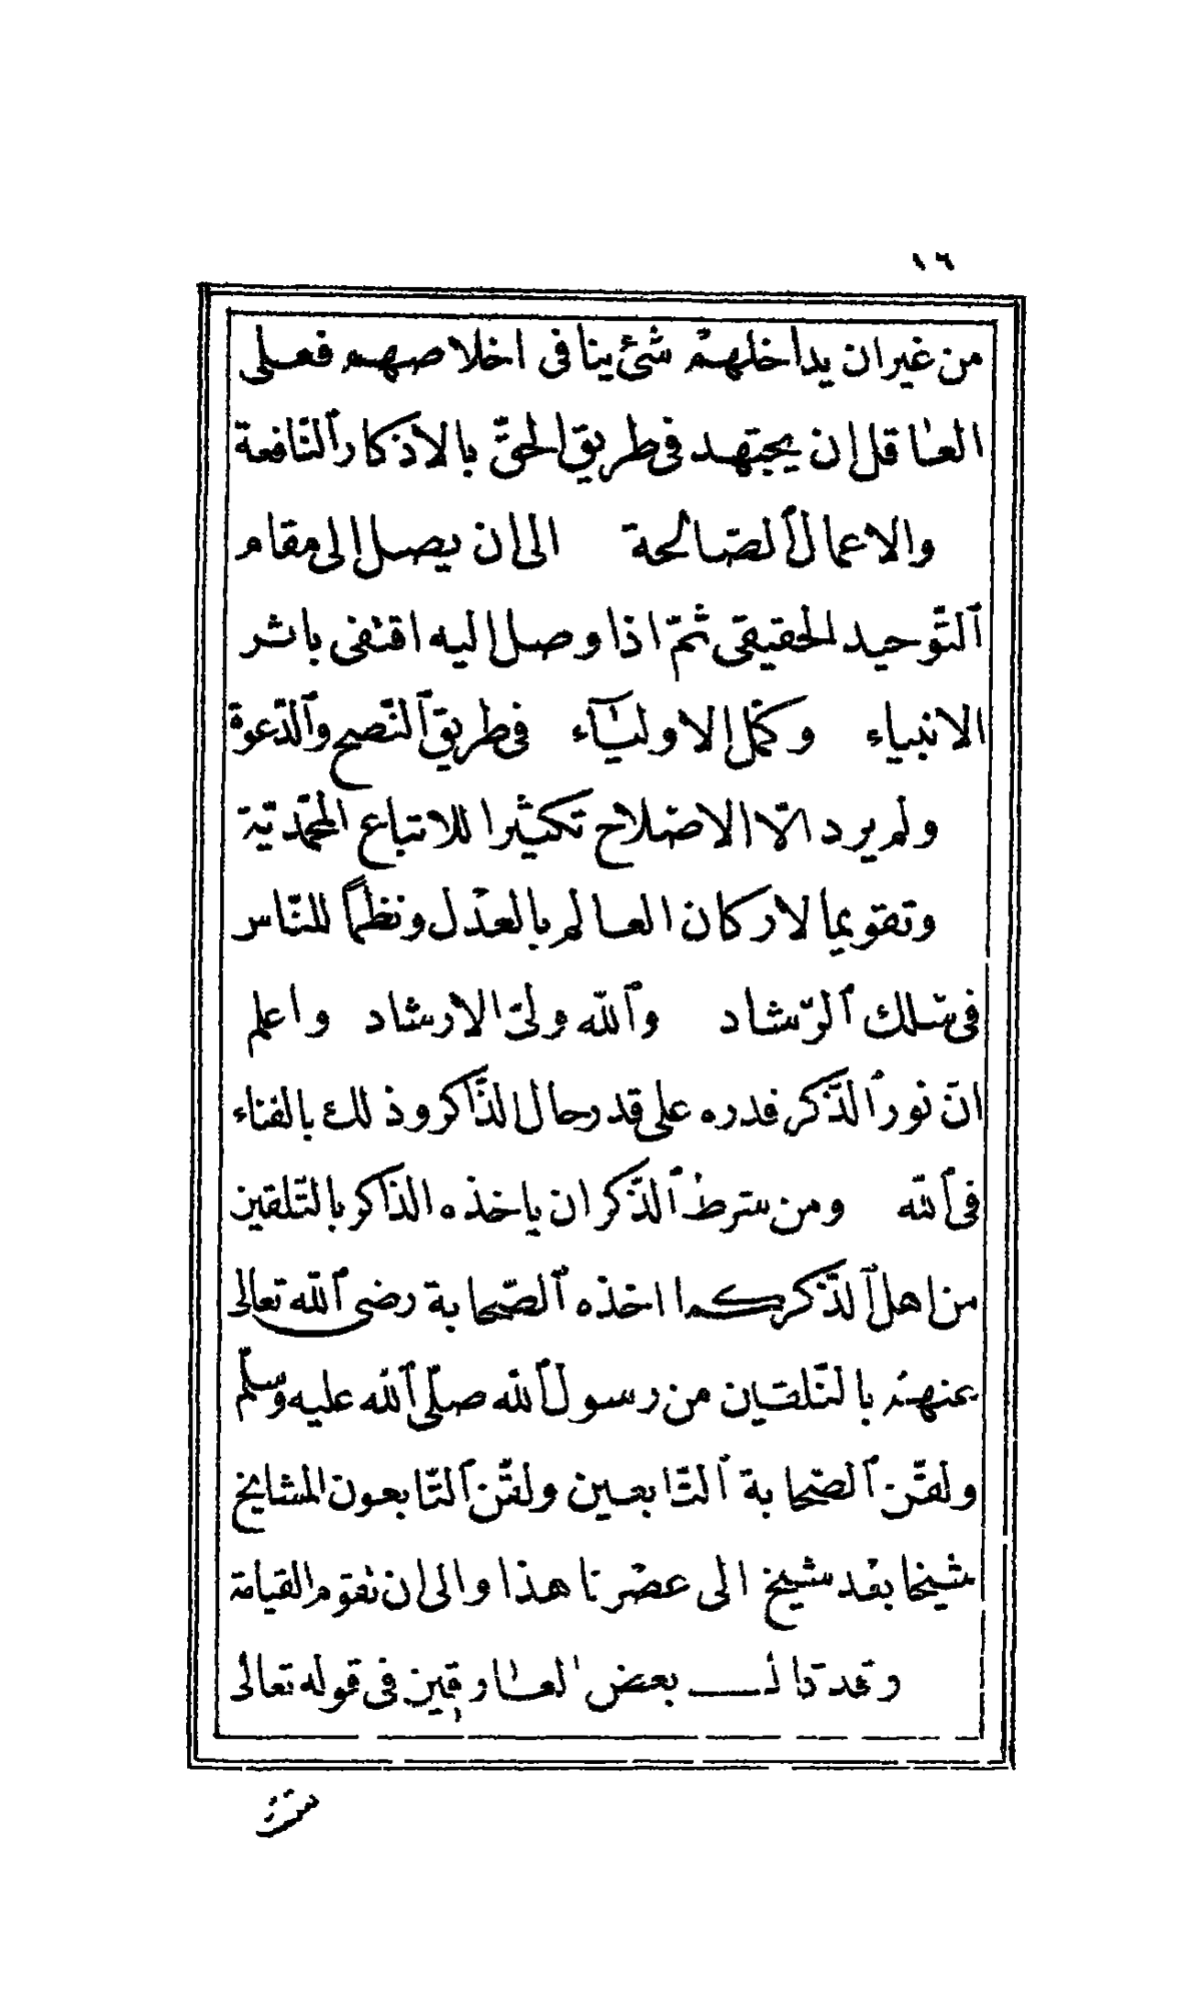 ١٦
من غيران يداخلهم شئ ينافى اخلاصهم فعلى
العاقل ان يجتهد فى طريق الحقّ بالاذكار النّافعة
والاعمال الصّالحة الى ان يصل الى مقام
التّوحيد الحقيقى ثمّ اذا وصل اليه اقتفى باثر
الانبياء وكمّل الاولياء فى طريق النّصح والدّعوة
ولم يرد الّا الاصلاح تكثيرا للاتباع المحمّديّة
وتقويما لاركان العالم بالعدل ونظماً للنّاس
فى سلك الرّشاد والله ولىّ الارشاد واعلم
انّ نور الذّكر قدره على قدر حال الذّاكر وذلك بالفناء
فى الله ومن شرط الذّكر ان ياخذه الذاكر بالتّلقين
من اهل الذّكر كما اخذه الصّحابة رضى الله تعالى
عنهم بالتّلقين من رسول الله صلّى الله عليه وسلّم
ولقّن الصّحابة التّابعين ولقّن التّابعون المشايخ
شيخا بعد شيخ الى عصرنا هذا والى ان تقوم القيامة
وقد قال بعض العارفين فى قوله تعالى